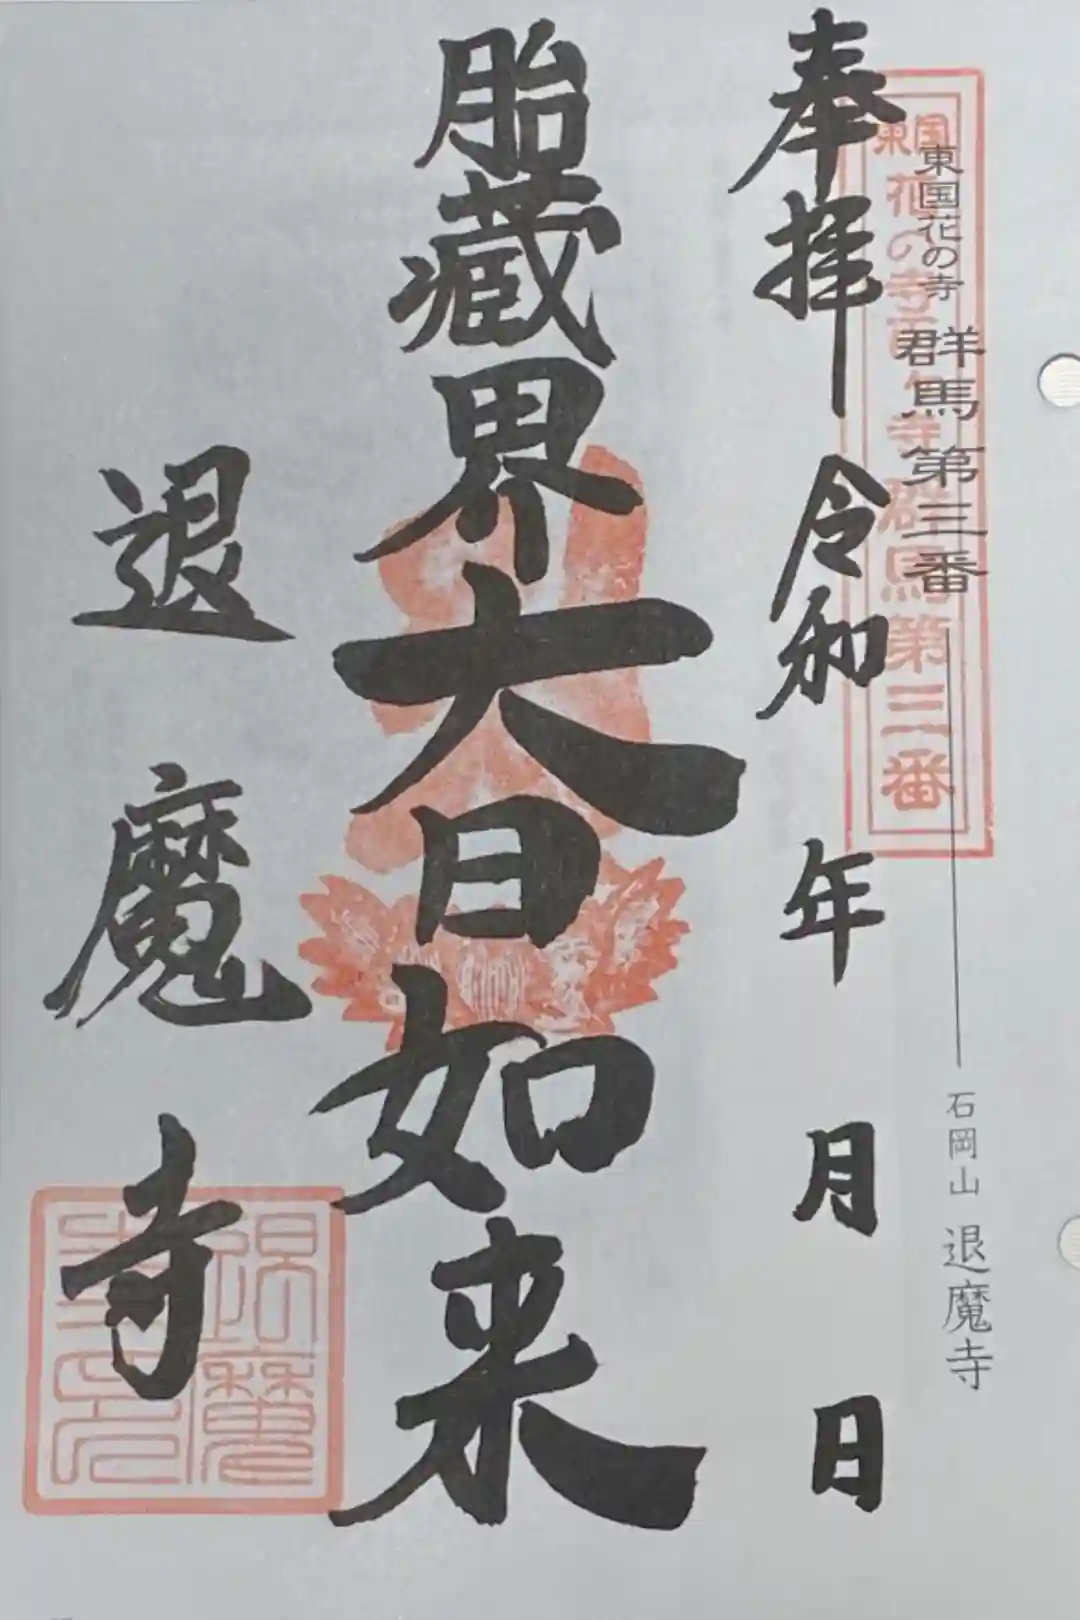 東国花の寺 群馬第三番 石岡山 退魔寺
東国花の寺百ケ寺 群馬第三番
奉拝 令和 年 月 日
胎蔵界大日如来
退魔寺